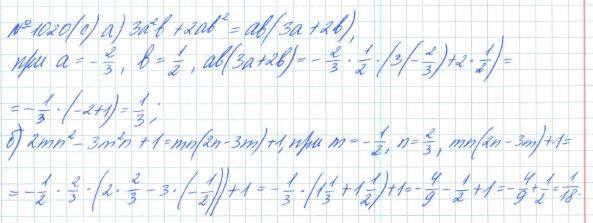 №1020(с) а) 3a²b + 2ab² = ab(3a + 2b),
при a = -2/3, b = 1/2, ab(3a+2b) = -2/3 · 1/2 · (3(-2/3) + 2 · 1/2) =
= -1/3 · (-2+1) = 1/3;
б) 2mn² - 3m²n + 1 = mn(2n - 3m) + 1, при m = -1/2, n = 2/3, mn(2n - 3m) + 1 =
= -1/2 · 2/3 · (2 · 2/3 - 3 · (-1/2)) + 1 = -1/3 · (1 1/3 + 1 1/2) + 1 = -4/9 - 1/2 + 1 = -4/9 + 1/2 = 1/18.